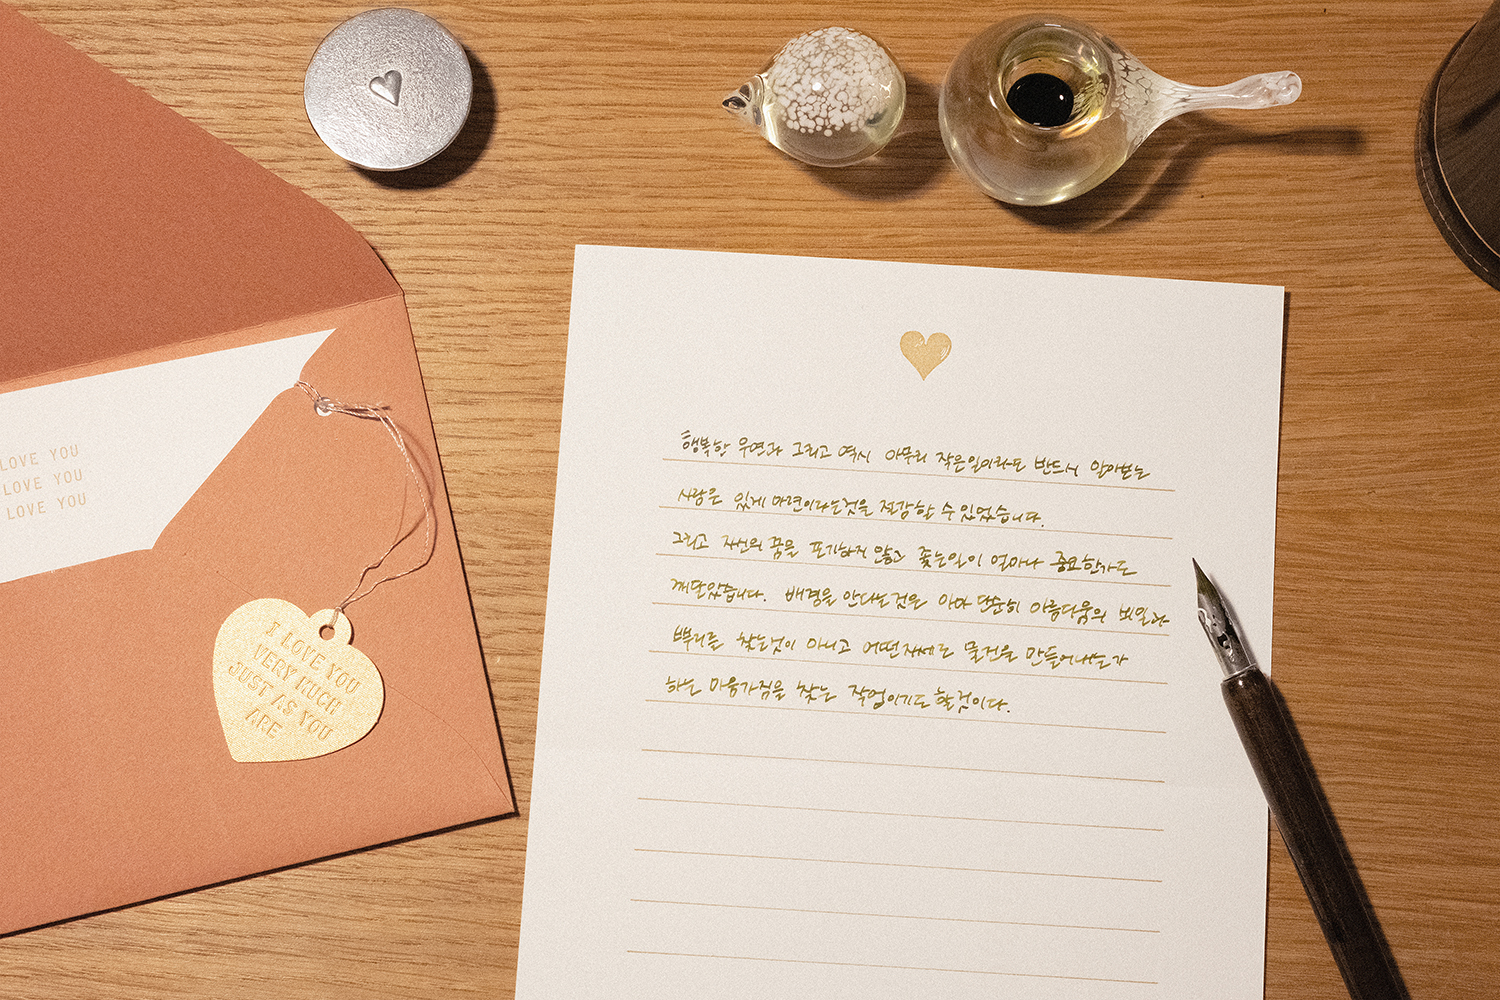 LOVE YOU
LOVE YOU
LOVE YOU
I LOVE YOU
VERY MUCH
JUST AS YOU
ARE
행복한 우연과 그리고 역시 아무리 작은일이라도 반드시 알아보는
사람은 있게 마련이라는것을 절감할 수 있었습니다.
그리고 자신의 꿈을 포기하지 않고 좇는일이 얼마나 중요한가도
깨달았습니다. 배경을 안다는것은 아마 단순히 아름다움의 비밀과
뿌리를 찾는것이 아니고 어떤자세로 물건을 만들어내는가
하는 마음가짐을 찾는 작업이기도 할것이다.